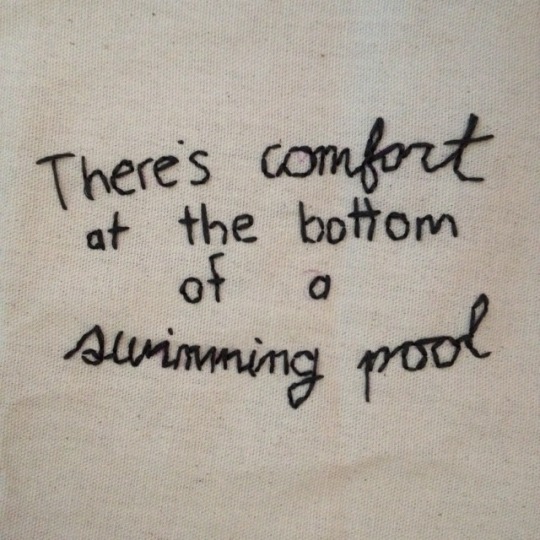 There's comfort
at the bottom
of a
swimming pool